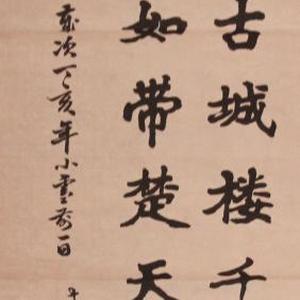 古城楼千
如带楚天
岁次丁亥年小雪前一日